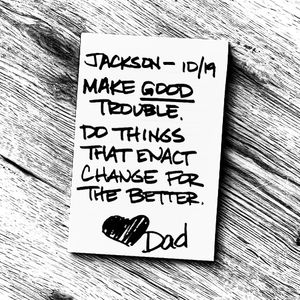 JACKSON - 10/19
MAKE GOOD
TROUBLE.
DO THINGS
THAT ENACT
CHANGE FOR
THE BETTER.
Dad